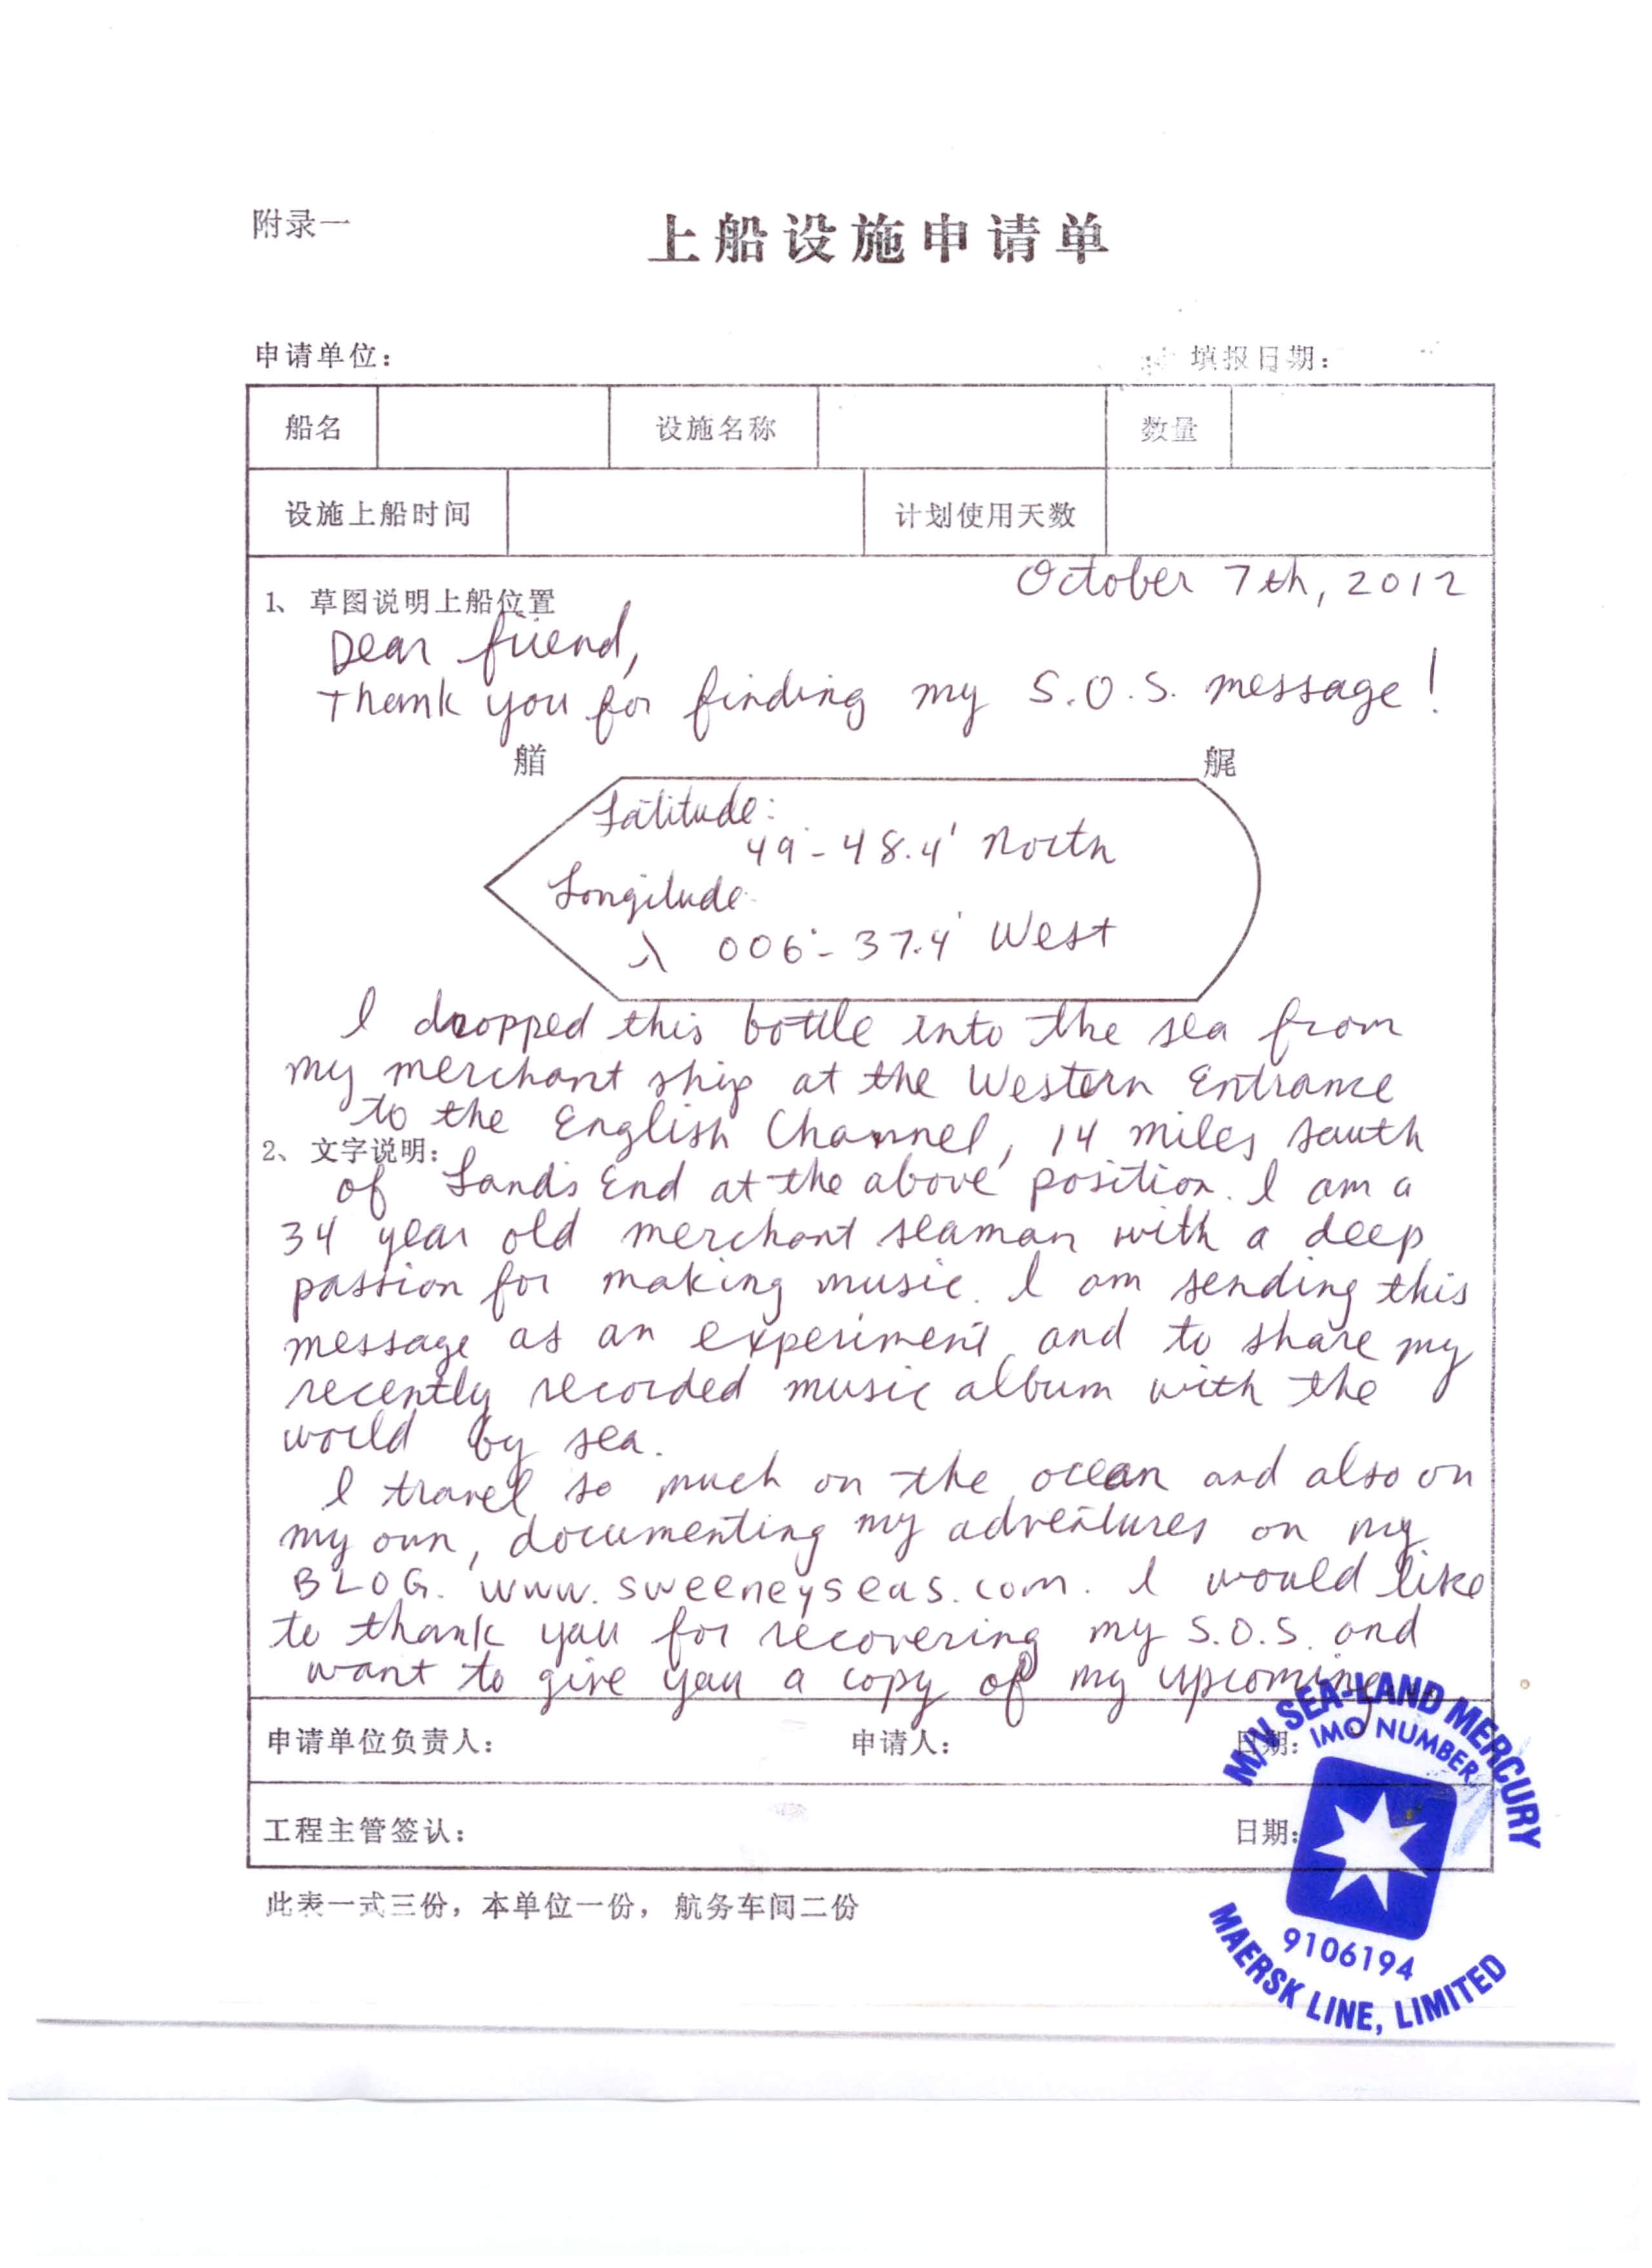 附录一
上船设施申请单
申请单位：
填报日期：
船名 设施名称 数量
设施上船时间 计划使用天数
October 7th, 2012
1、草图说明上船位置
Dear friend,
Thank you for finding my S.O.S. message!
艏 艉
Latitude:
49°-48.4' North
Longitude
λ 006°-37.4' West
I dropped this bottle into the sea from
my merchant ship at the Western Entrance
to the English Channel, 14 miles south
2、文字说明：
of Land's End at the above position. I am a
34 year old merchant seaman with a deep
passion for making music. I am sending this
message as an experiment and to share my
recently recorded music album with the
world by sea.
I travel so much on the ocean and also on
my own, documenting my adventures on my
BLOG. www.sweeneyseas.com. I would like
to thank you for recovering my S.O.S. and
want to give you a copy of my upcoming
申请单位负责人： 申请人： 日期：
工程主管签认： 日期：
M/V SEA-LAND MERCURY
IMO NUMBER
9106194
MAERSK LINE, LIMITED
此表一式三份，本单位一份，航务车间二份